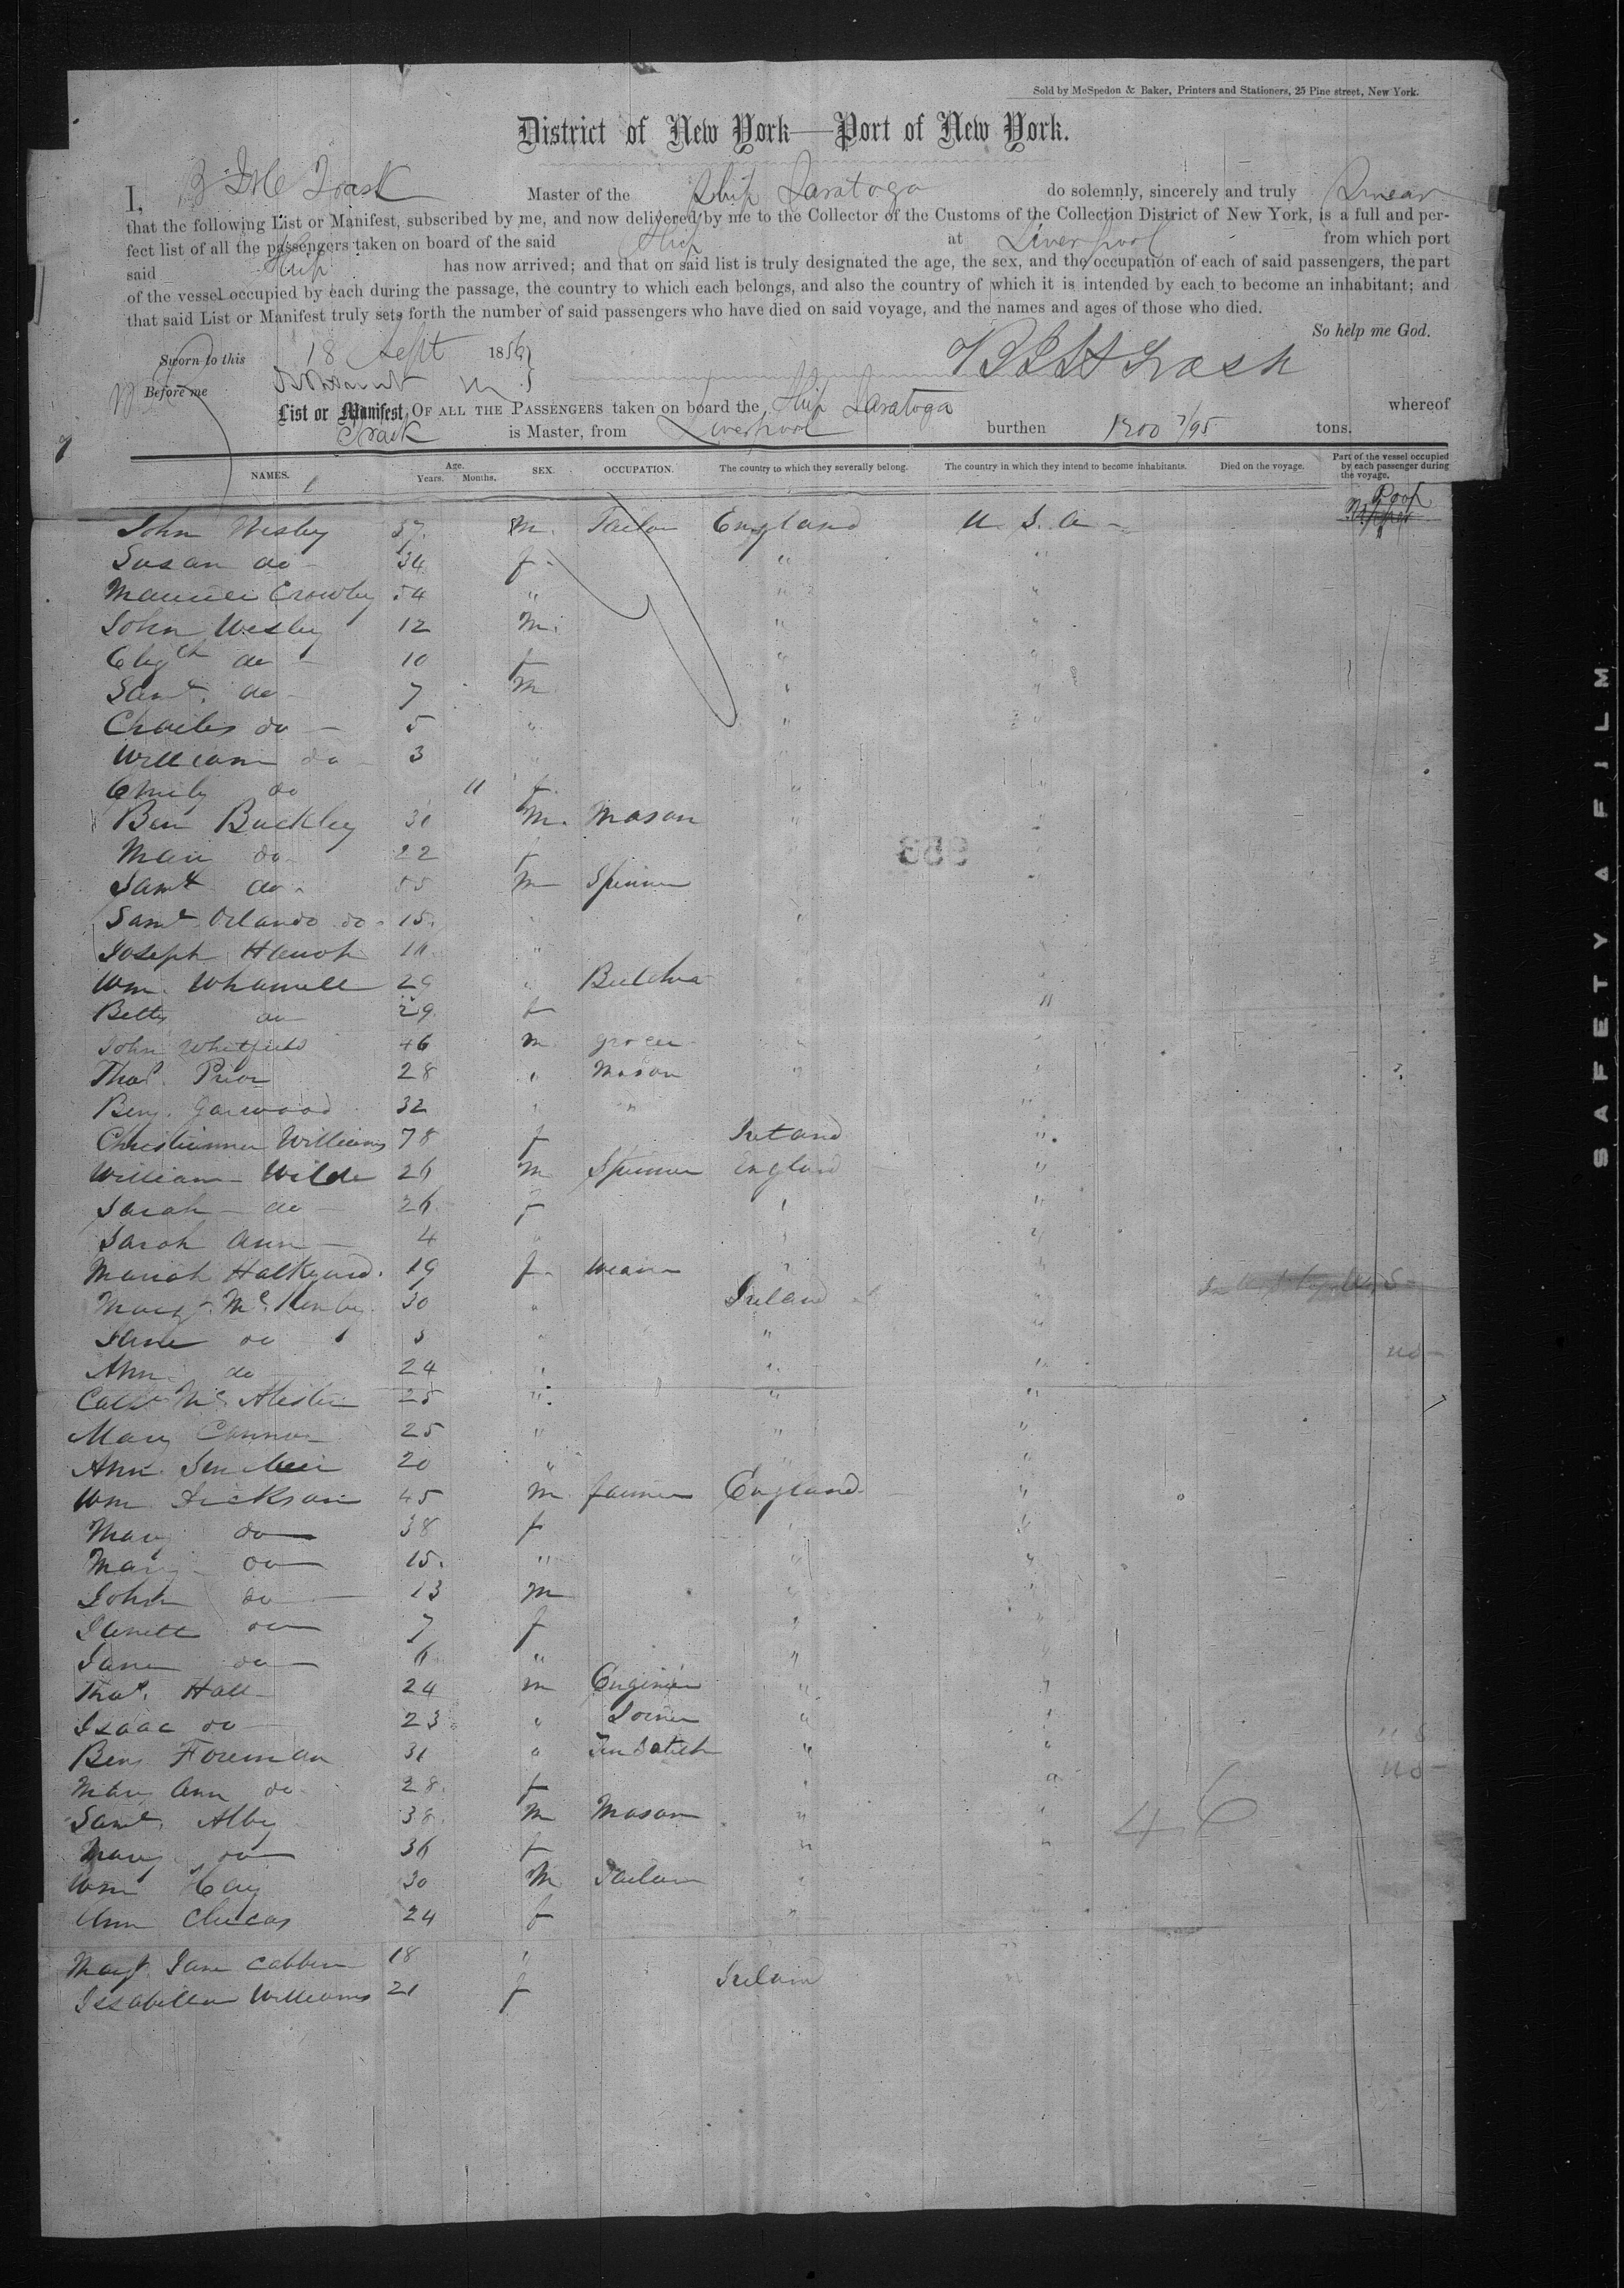 Sold by McSpedon & Baker, Printers and Stationers, 25 Pine street, New York.
District of New York—Port of New York.
I, Trask Master of the Ship Saratoga do solemnly, sincerely and truly Swear
that the following List or Manifest, subscribed by me, and now delivered by me to the Collector of the Customs of the Collection District of New York, is a full and per-
fect list of all the passengers taken on board of the said Ship at Liverpool from which port
said Ship has now arrived; and that on said list is truly designated the age, the sex, and the occupation of each of said passengers, the part
of the vessel occupied by each during the passage, the country to which each belongs, and also the country of which it is intended by each to become an inhabitant; and
that said List or Manifest truly sets forth the number of said passengers who have died on said voyage, and the names and ages of those who died.
So help me God.
Sworn to this 18 Sept 1856
Trask
Before me
List or Manifest, OF ALL THE PASSENGERS taken on board the Ship Saratoga whereof
Trask is Master, from Liverpool burthen 1200 7/95 tons.
NAMES. Age. Years. Months. SEX. OCCUPATION. The country to which they severally belong. The country in which they intend to become inhabitants. Died on the voyage. Part of the vessel occupied by each passenger during the voyage.
Poop
John Wesley 37 m. Tailor England U. S. A
Susan do 34 f " "
Crowley 54 " " "
John Wesley 12 m. " "
Eligth do 10 f " "
Saml. do 7 m " "
Charles do 5 " " "
William do 3 " "
Emily do 11 f " "
Ben Buckley 31 m. Mason " "
Mary do 22 f
Saml do 55 m Spinner
Saml Orlando do 15 " "
Joseph 11 "
Wm. Whamell 29 " Butcher " "
Betty do 29 f "
John Whitfield 46 m grocer " "
Thos. Prior 28 " Mason " "
Benj. Garwood 32 " " "
Williams 78 f Ireland "
William Wilde 26 m Spinner England "
Sarah do 26 f " "
Sarah Ann 4 " " "
Mariah Halkyard 19 f weaver " "
Margt. Mc 30 " Ireland "
Jane do 5 " " "
Ann do 24 " " "
Mc 25 " " "
Mary Connor 25 " " "
Ann 20 " " "
Wm. Dickson 45 m farmer England "
Mary do 38 f " "
Mary do 15 " " "
John do 13 m " "
do 7 f " "
Jane do 6 " " "
Thos. Hall 24 m Engineer " "
Isaac do 23 " Joiner " "
Benj Foreman 31 " " "
Mary Ann do 28 f " "
Saml. Alby 38 m Mason " "
Mary do 36 f " "
46
Wm Hay 30 m Tailor "
Ann 24 f "
Margt Jane 18 "
Isabella Williams 21 f Ireland
SAFETY FILM